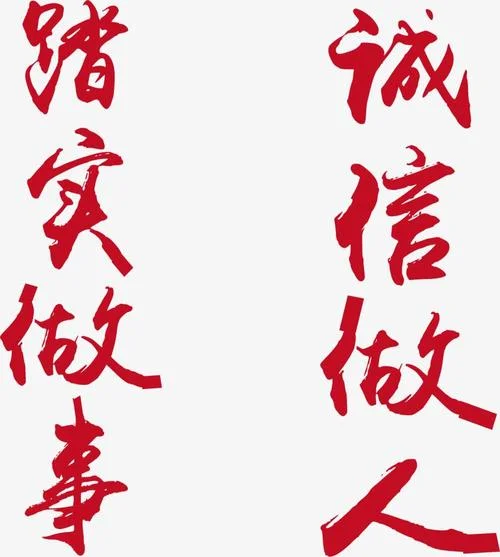 诚信做人
踏实做事